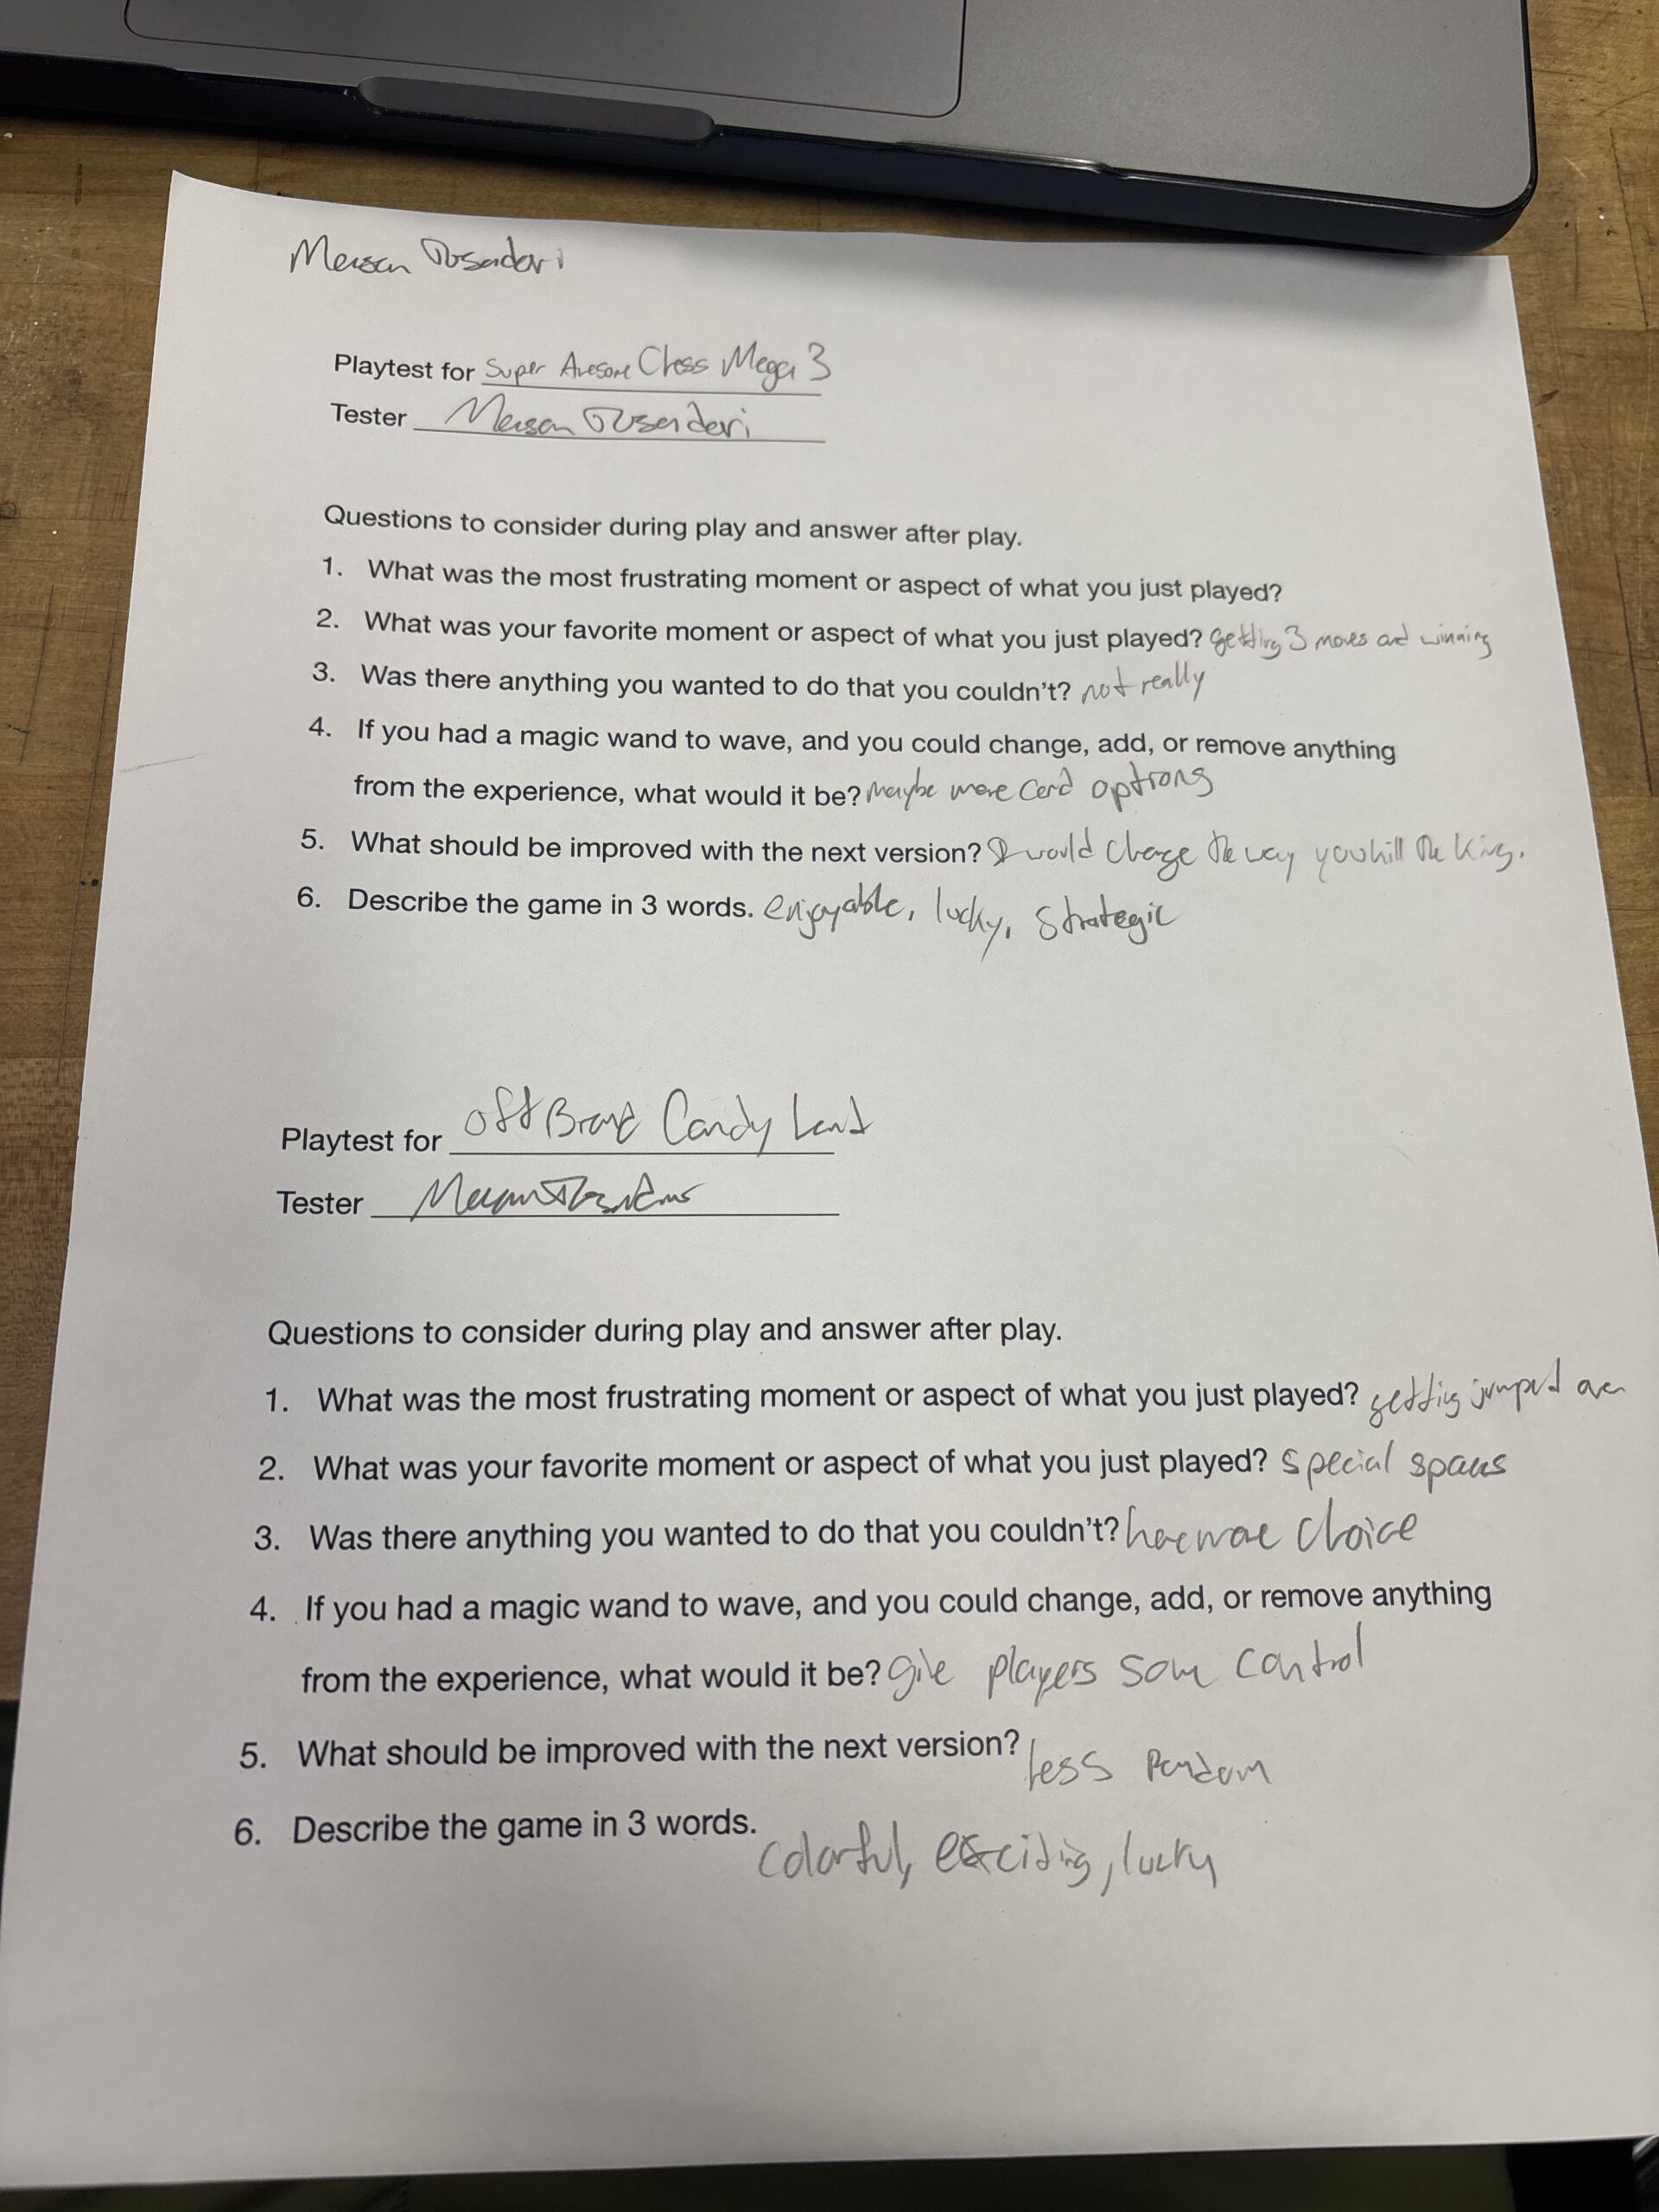 Playtest for Super Awesome Chess Mega 3
Tester
Questions to consider during play and answer after play.
1. What was the most frustrating moment or aspect of what you just played?
2. What was your favorite moment or aspect of what you just played? getting 3 moves and winning
3. Was there anything you wanted to do that you couldn't? not really
4. If you had a magic wand to wave, and you could change, add, or remove anything
from the experience, what would it be? maybe more card options
5. What should be improved with the next version? I would change the way you kill the king.
6. Describe the game in 3 words. enjoyable, lucky, strategic
Playtest for Off Brand Candy Land
Tester
Questions to consider during play and answer after play.
1. What was the most frustrating moment or aspect of what you just played? getting jumped over
2. What was your favorite moment or aspect of what you just played? special spaces
3. Was there anything you wanted to do that you couldn't? choice
4. If you had a magic wand to wave, and you could change, add, or remove anything
from the experience, what would it be? give players some control
5. What should be improved with the next version? less random
6. Describe the game in 3 words.
colorful, exciting, lucky